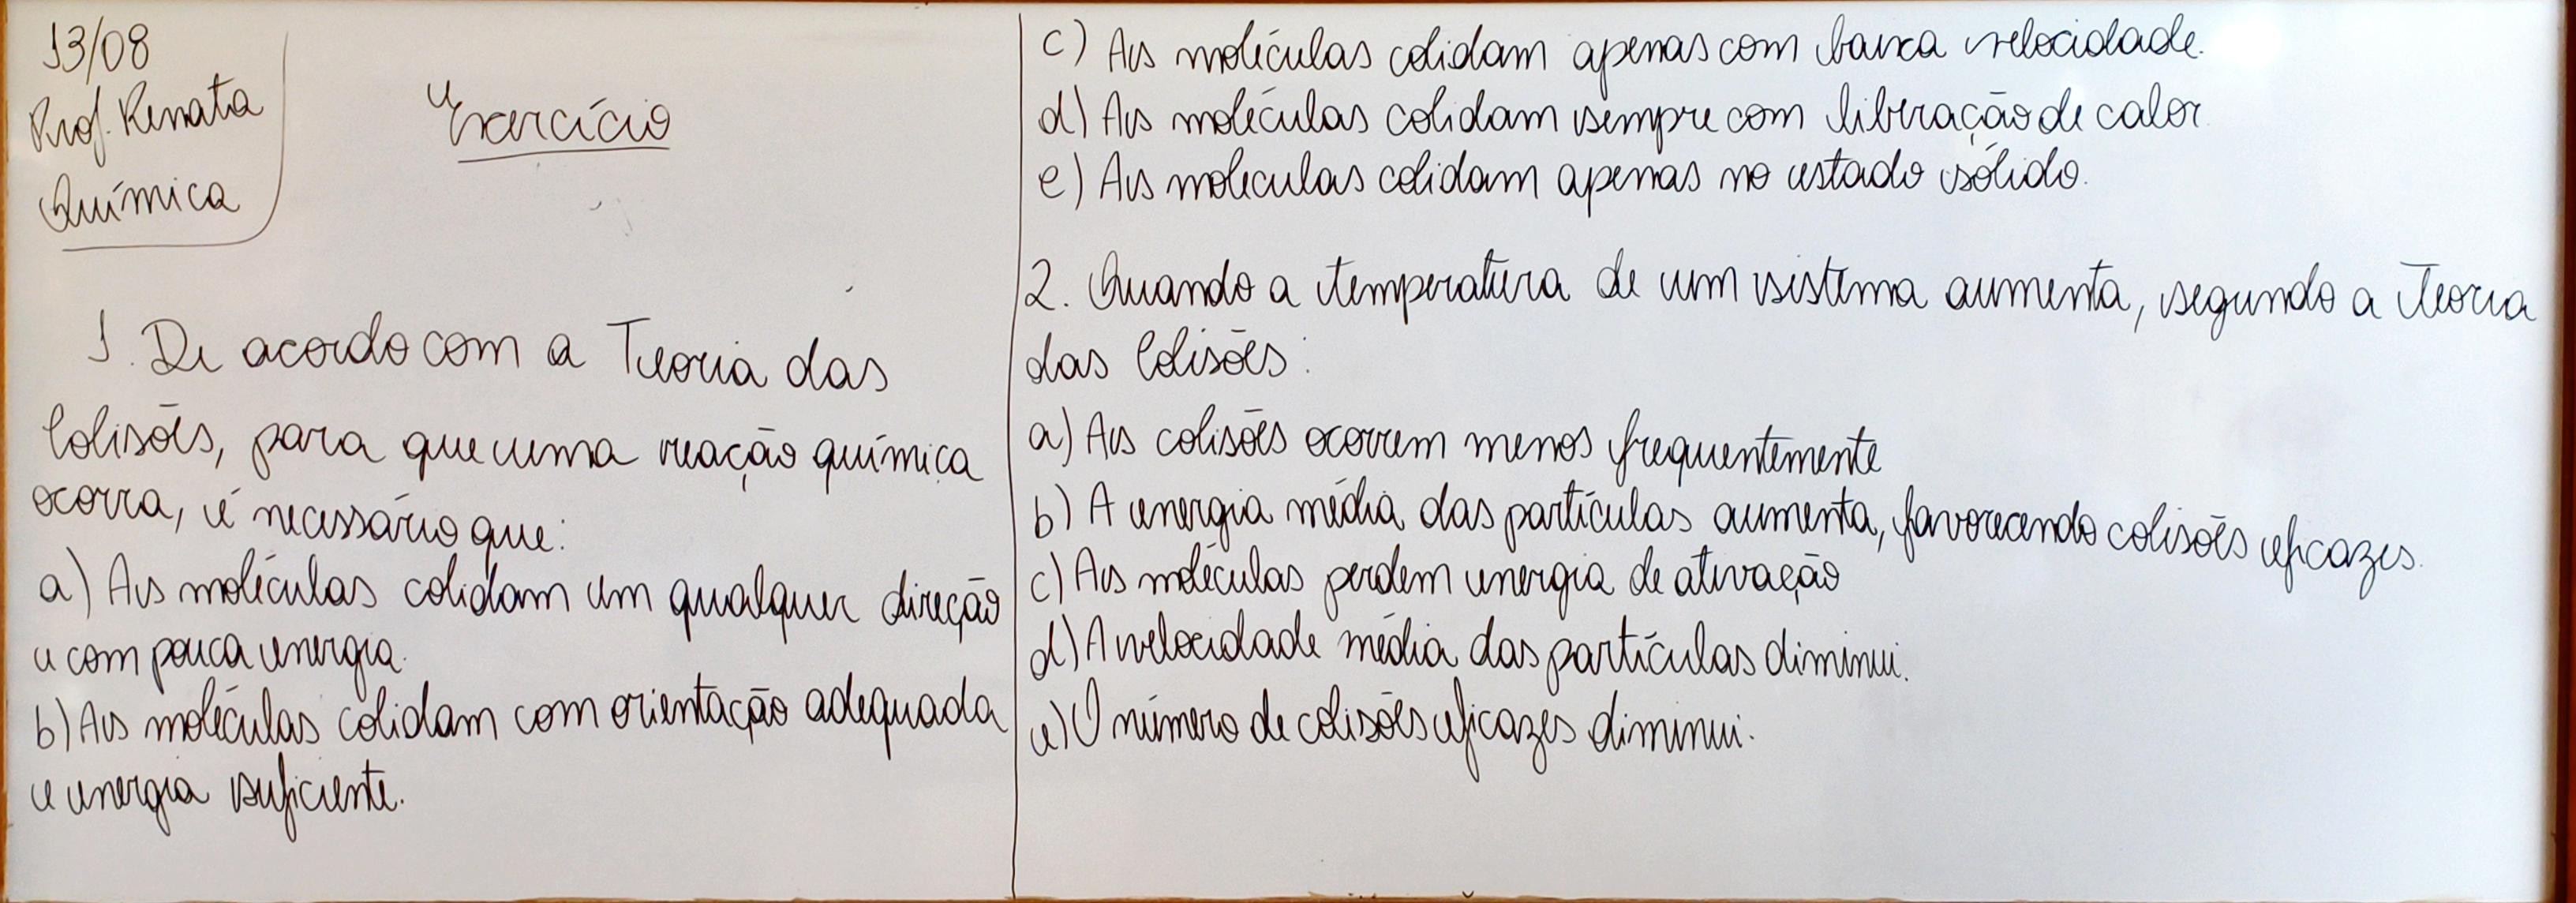 13/08
Prof. Renata
Química
Exercício
1. De acordo com a Teoria das
Colisões, para que uma reação química
ocorra, é necessário que:
a) As moléculas colidam em qualquer direção
e com pouca energia.
b) As moléculas colidam com orientação adequada
e energia suficiente.
c) As moléculas colidam apenas com baixa velocidade.
d) As moléculas colidam sempre com liberação de calor.
e) As moleculas colidam apenas no estado sólido.
2. Quando a temperatura de um sistema aumenta, segundo a Teoria
das Colisões:
a) As colisões ocorrem menos frequentemente
b) A energia média das partículas aumenta, favorecendo colisões eficazes.
c) As moléculas perdem energia de ativação
d) A velocidade média das partículas diminui.
e) O número de colisões eficazes diminui.